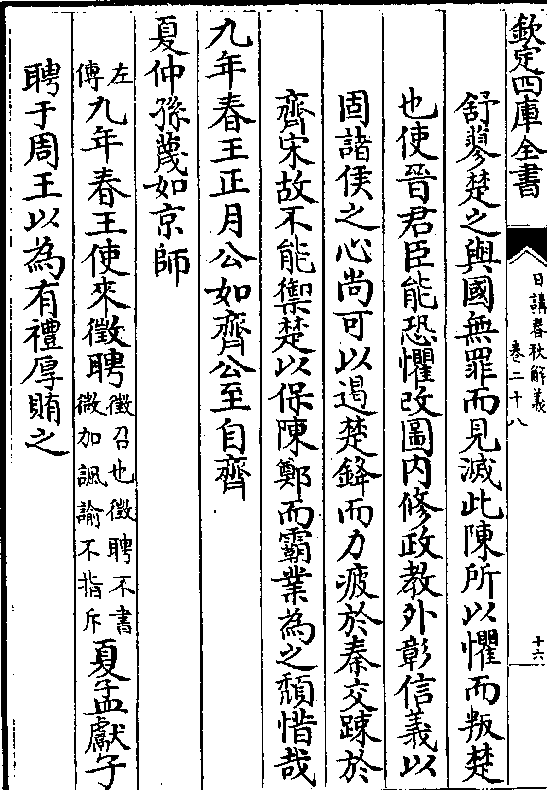 欽定四庫全書
日講春秋解義
卷二十八
十六
舒蓼楚之與國無罪而見滅此陳所以懼而叛楚
也使晉君臣能恐懼改圖內修政教外彰信義以
固諸侯之心尚可以遏楚鋒而力疲於秦交踈於
齊宋故不能禦楚以保陳鄭而霸業為之頽惜哉
九年春王正月公如齊公至自齊
夏仲孫蔑如京師
左傳九年春王使來徵聘徵召也徵聘不書微加諷諭不指斥夏孟獻子
聘于周王以為有禮厚賄之